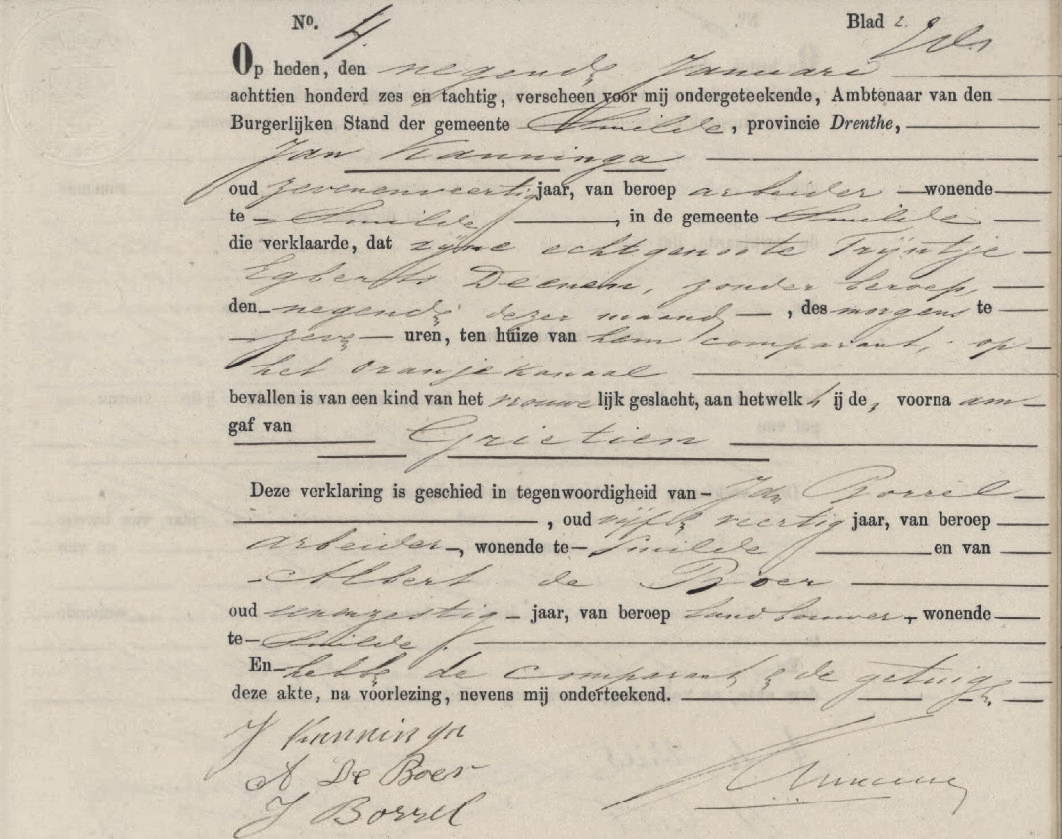 No. 4. Blad 2.
Op heden, den negende Januari
achttien honderd zes en tachtig, verscheen voor mij ondergeteekende, Ambtenaar van den
Burgerlijken Stand der gemeente Smilde, provincie Drenthe,
Jan Kanninga
oud zevenenveertig jaar, van beroep arbeider wonende
te Smilde, in de gemeente Smilde
die verklaarde, dat zijne echtgenoote Trijntje
Egberts Deenen, zonder beroep,
den negende dezer maand, des morgens te
zeven uren, ten huize van hem comparant, op
het Oranjekanaal
bevallen is van een kind van het vrouwelijk geslacht, aan hetwelk hij de voornaam
gaf van Grietien
Deze verklaring is geschied in tegenwoordigheid van Jan Borrel
, oud vijfenveertig jaar, van beroep
arbeider, wonende te Smilde en van
Albert de Boer
oud jaar, van beroep landbouwer, wonende
te Smilde.
En hebben de comparant en de getuigen
deze akte, na voorlezing, nevens mij onderteekend.
J Kanninga
A De Boer
J Borrel